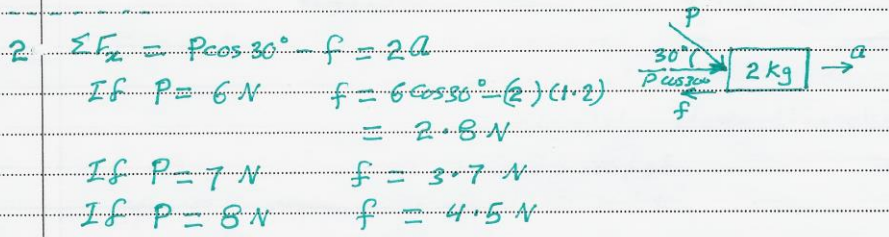 2. ΣFx = Pcos 30° - f = 2a
If P = 6 N f = 6 cos30° - (2)(1.2)
= 2.8 N
If P = 7 N f = 3.7 N
If P = 8 N f = 4.5 N
P
30°
P cos300
f
2 kg
a